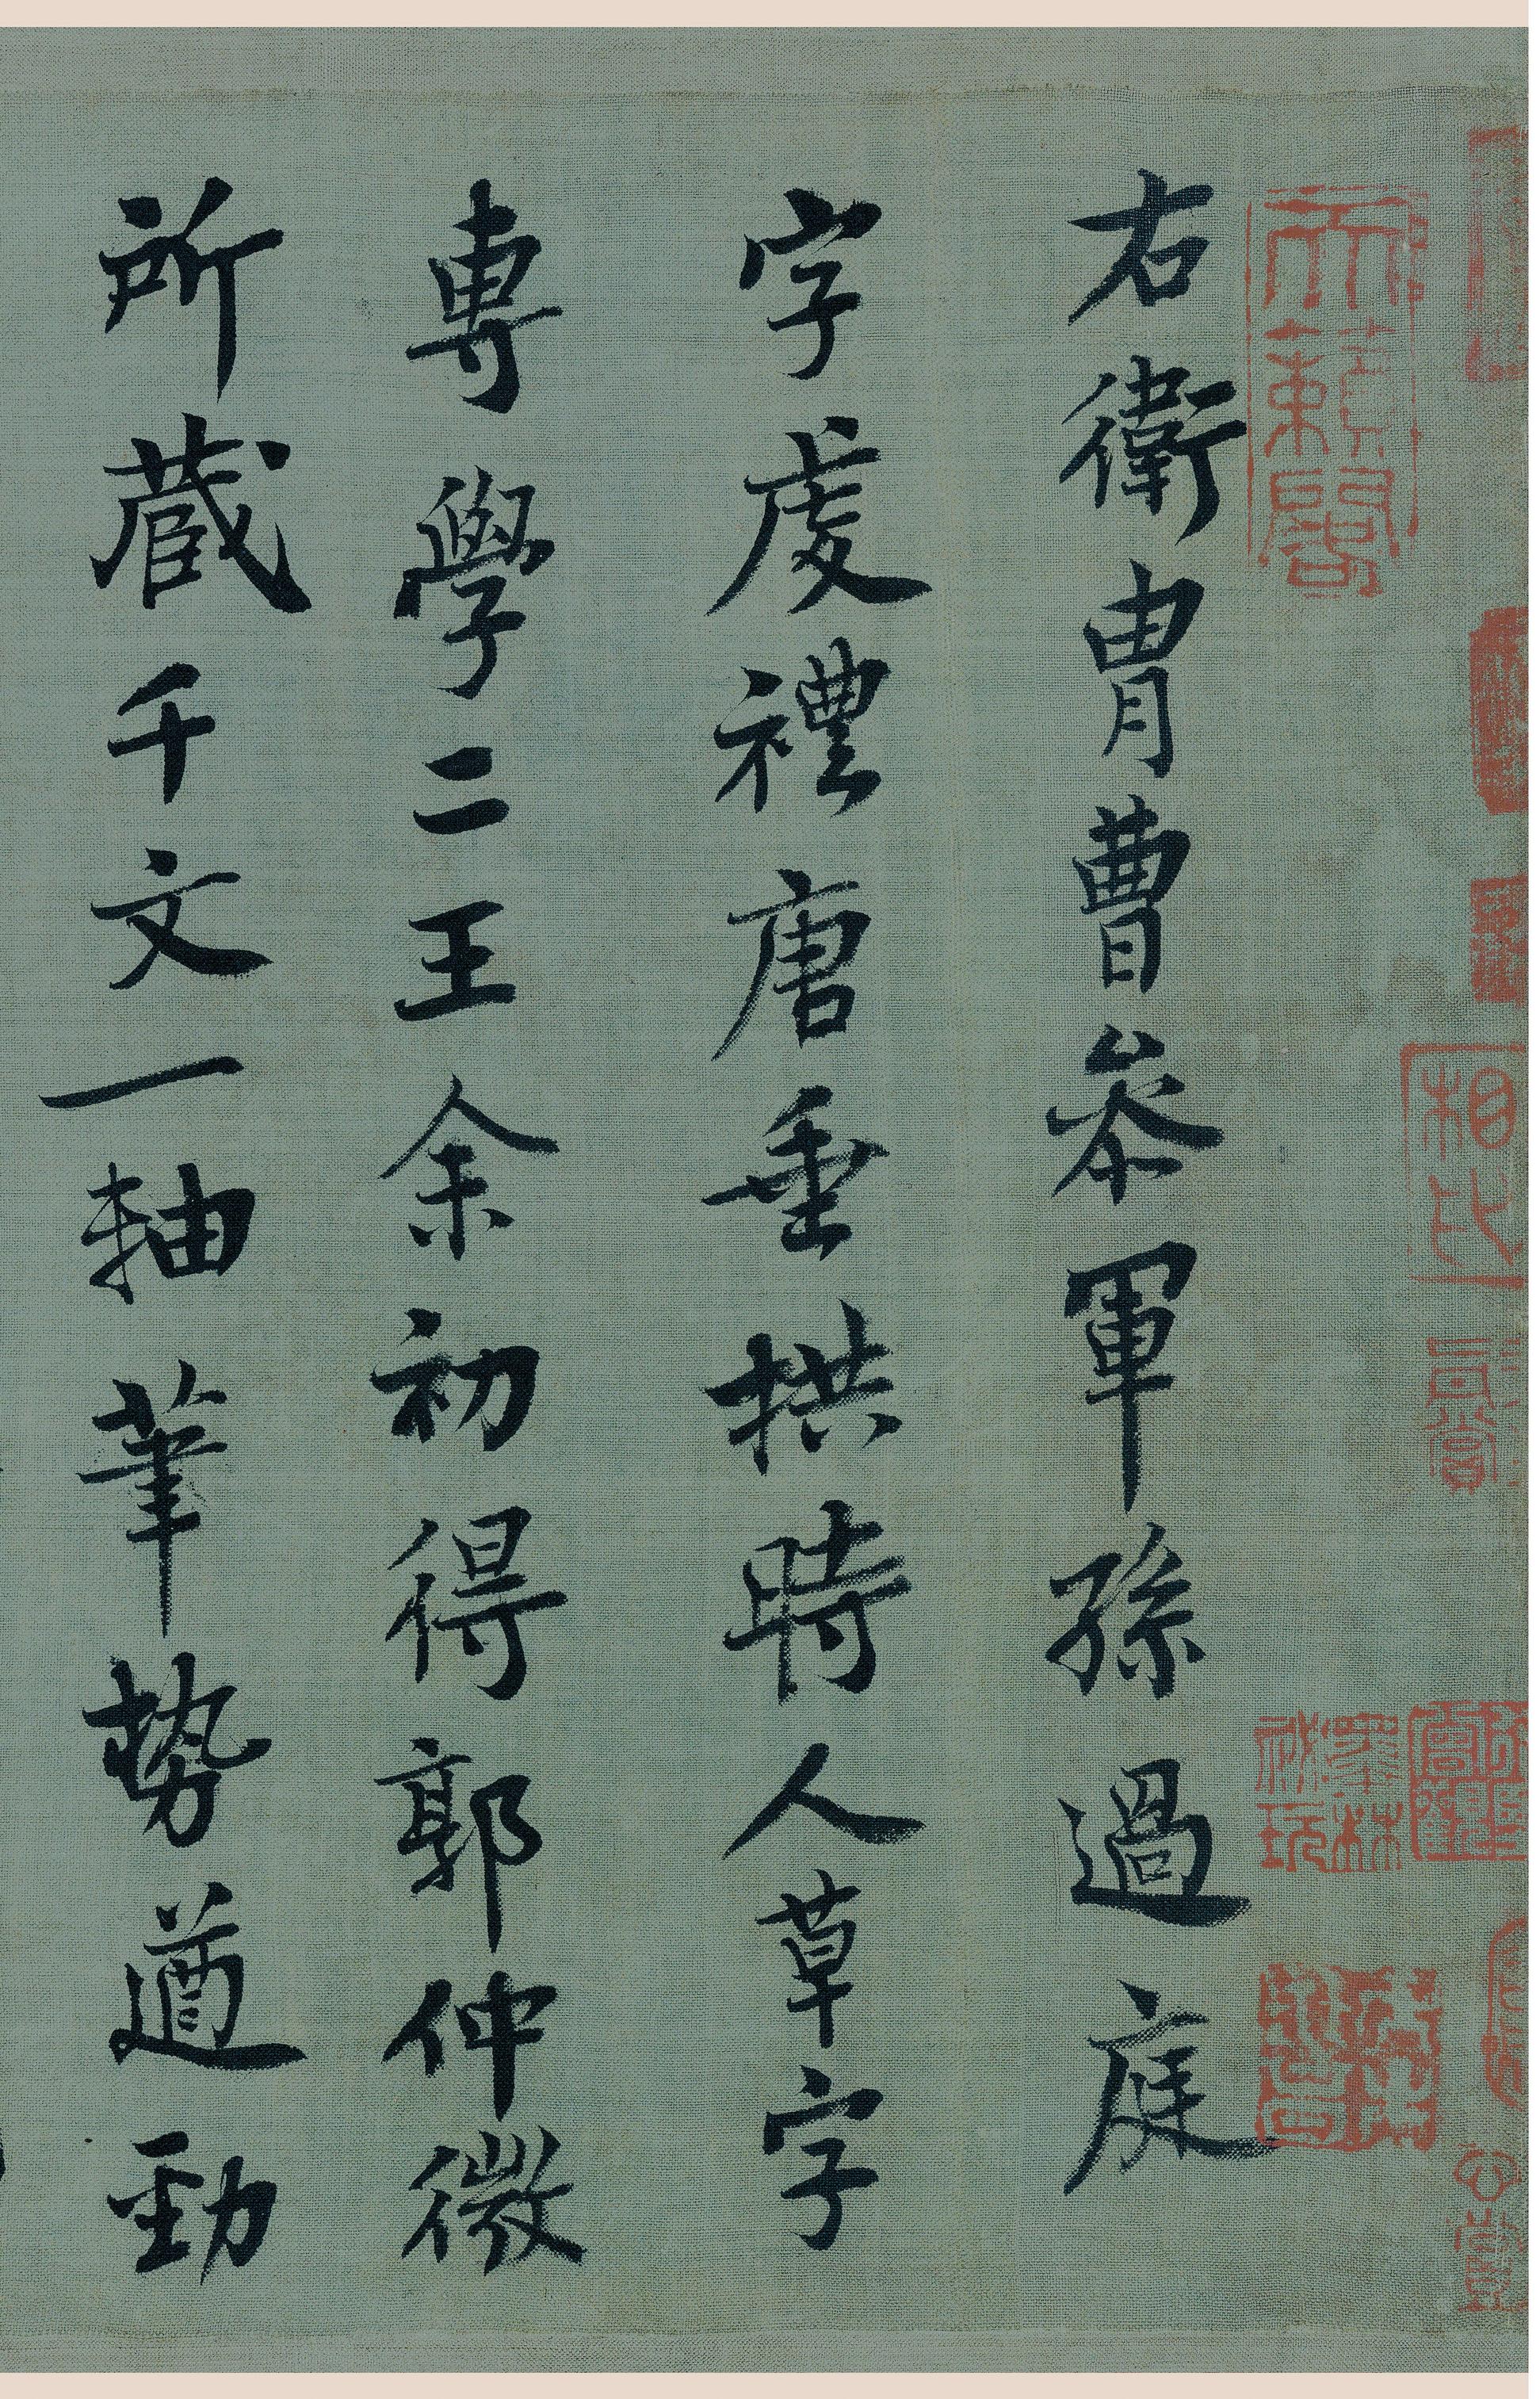 右衛冑曹參軍孫過庭
字虔禮唐垂拱時人草字
專學二王余初得郭仲微
所蔵千文一軸筆勢遒勁
天籟閣
相比